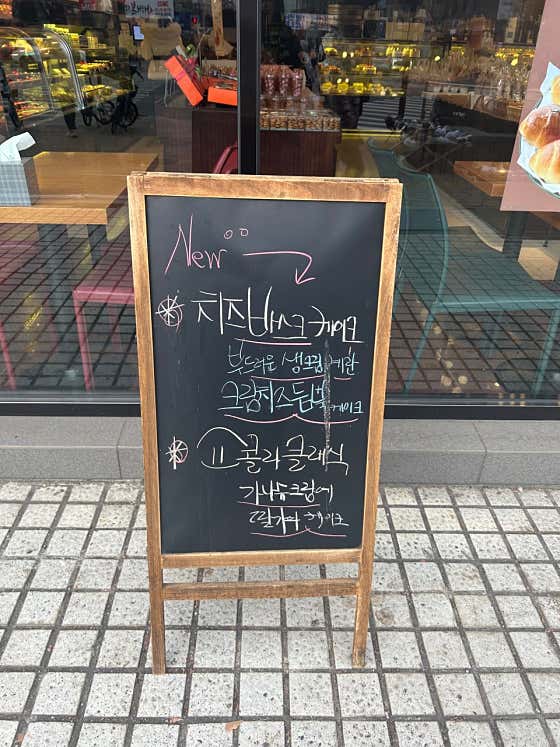 New
치즈바스크 케이크
부드러운 생크림, 계란
크림치즈듬뿍 케이크
클래식
가나슈크림에
딸기 케이크